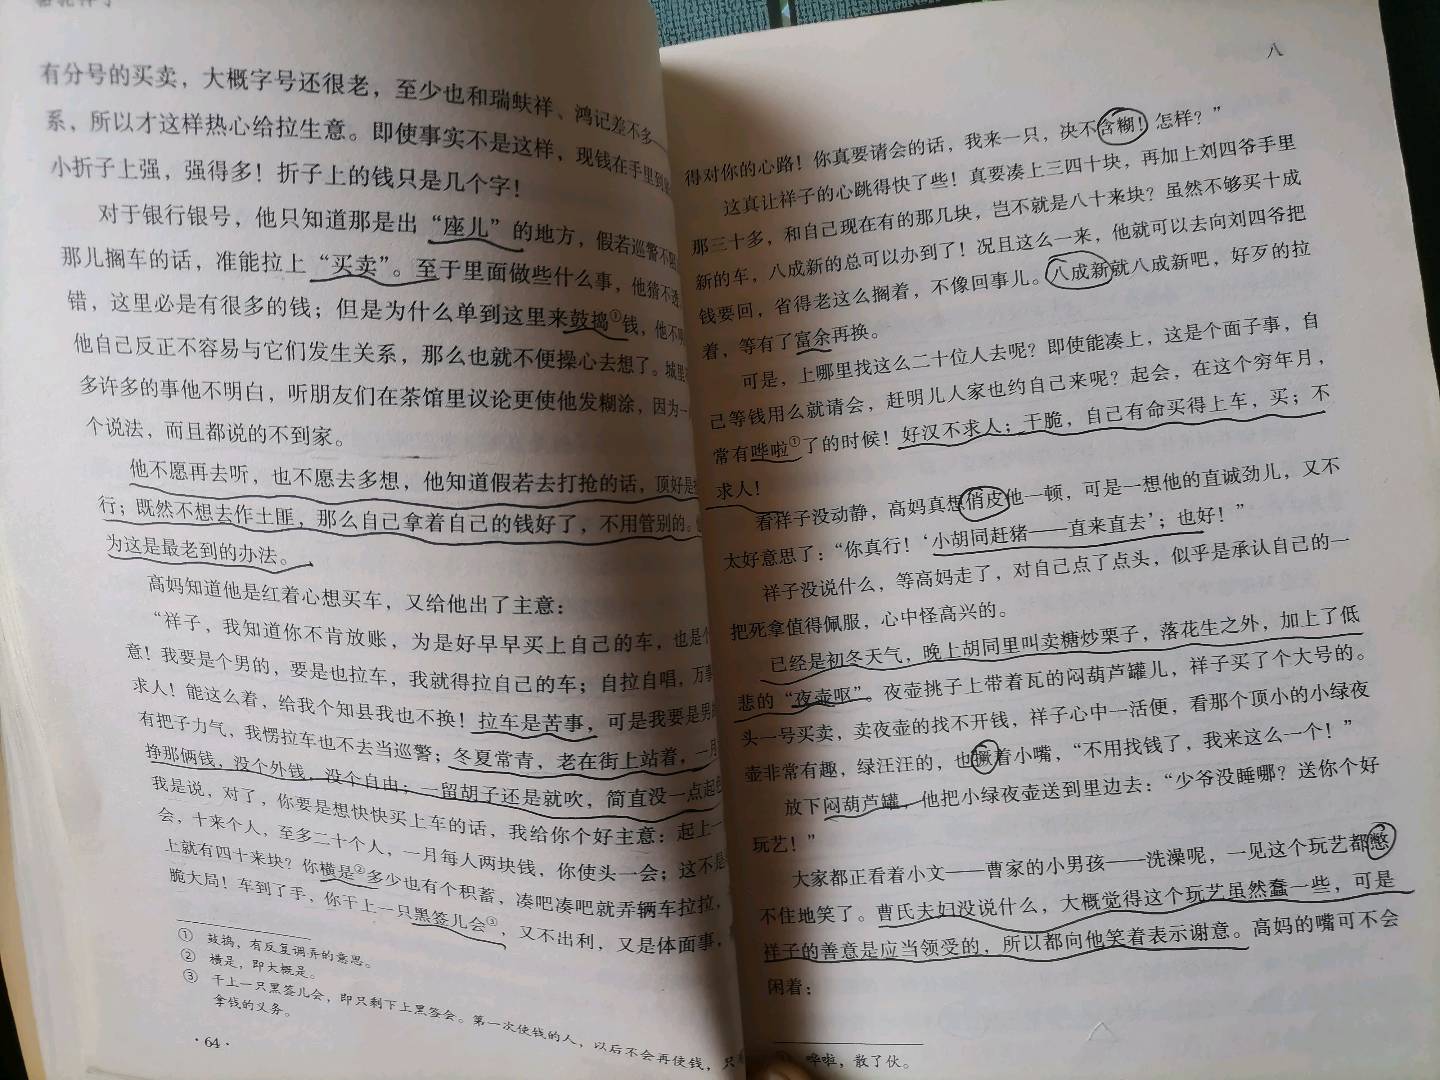 有分号的买卖，大概字号还很老，至少也和瑞蚨祥、鸿记差不多
系，所以才这样热心给拉生意。即使事实不是这样，现钱在手里到
小折子上强，强得多！折子上的钱只是几个字！
对于银行银号，他只知道那是出“座儿”的地方，假若巡警不
那儿搁车的话，准能拉上“买卖”。至于里面做些什么事，他猜不透
错，这里必是有很多的钱；但是为什么单到这里来鼓捣①钱，他不明
他自己反正不容易与它们发生关系，那么也就不便操心去想了。城里
多许多的事他不明白，听朋友们在茶馆里议论更使他发糊涂，因为一
个说法，而且都说的不到家。
他不愿再去听，也不愿去多想，他知道假若去打抢的话，顶好是
行；既然不想去作土匪，那么自己拿着自己的钱好了，不用管别的。
为这是最老到的办法。
高妈知道他是红着心想买车，又给他出了主意：
“祥子，我知道你不肯放账，为是好早早买上自己的车，也是个
意！我要是个男的，要是也拉车，我就得拉自己的车；自拉自唱，万事
求人！能这么着，给我个知县我也不换！拉车是苦事，可是我要是男的
有把子力气，我愣拉车也不去当巡警；冬夏常青，老在街上站着，一月
挣那俩钱，没个外钱，没个自由；一留胡子还是就吹，简直没一点起色
我是说，对了，你要是想快快买上车的话，我给你个好主意：起上一
会，十来个人，至多二十个人，一月每人两块钱，你使头一会；这不是
上就有四十来块？你横是②多少也有个积蓄，凑吧凑吧就弄辆车拉拉，
脆大局！车到了手，你干上一只黑签儿会③，又不出利，又是体面事，
① 鼓捣，有反复调弄的意思。
② 横是，即大概是。
③ 干上一只黑签儿会，即只剩下上黑签会。第一次使钱的人，以后不会再使钱，只
拿钱的义务。
·64·
八
得对你的心路！你真要请会的话，我来一只，决不含糊！怎样？”
这真让祥子的心跳得快了些！真要凑上三四十块，再加上刘四爷手里
那三十多，和自己现在有的那几块，岂不就是八十来块？虽然不够买十成
新的车，八成新的总可以办到了！况且这么一来，他就可以去向刘四爷把
钱要回，省得老这么搁着，不像回事儿。八成新就八成新吧，好歹的拉
着，等有了富余再换。
可是，上哪里找这么二十位人去呢？即使能凑上，这是个面子事，自
己等钱用么就请会，赶明儿人家也约自己来呢？起会，在这个穷年月，
常有哗啦①了的时候！好汉不求人；干脆，自己有命买得上车，买；不
求人！
看祥子没动静，高妈真想俏皮他一顿，可是一想他的直诚劲儿，又不
太好意思了：“你真行！‘小胡同赶猪——直来直去’；也好！”
祥子没说什么，等高妈走了，对自己点了点头，似乎是承认自己的一
把死拿值得佩服，心中怪高兴的。
已经是初冬天气，晚上胡同里叫卖糖炒栗子，落花生之外，加上了低
悲的“夜壶呕”。夜壶挑子上带着瓦的闷葫芦罐儿，祥子买了个大号的。
头一号买卖，卖夜壶的找不开钱，祥子心中一活便，看那个顶小的小绿夜
壶非常有趣，绿汪汪的，也撅着小嘴，“不用找钱了，我来这么一个！”
放下闷葫芦罐，他把小绿夜壶送到里边去：“少爷没睡哪？送你个好
玩艺！”
大家都正看着小文——曹家的小男孩——洗澡呢，一见这个玩艺都憋
不住地笑了。曹氏夫妇没说什么，大概觉得这个玩艺虽然蠢一些，可是
祥子的善意是应当领受的，所以都向他笑着表示谢意。高妈的嘴可不会
闲着：
哗啦，散了伙。